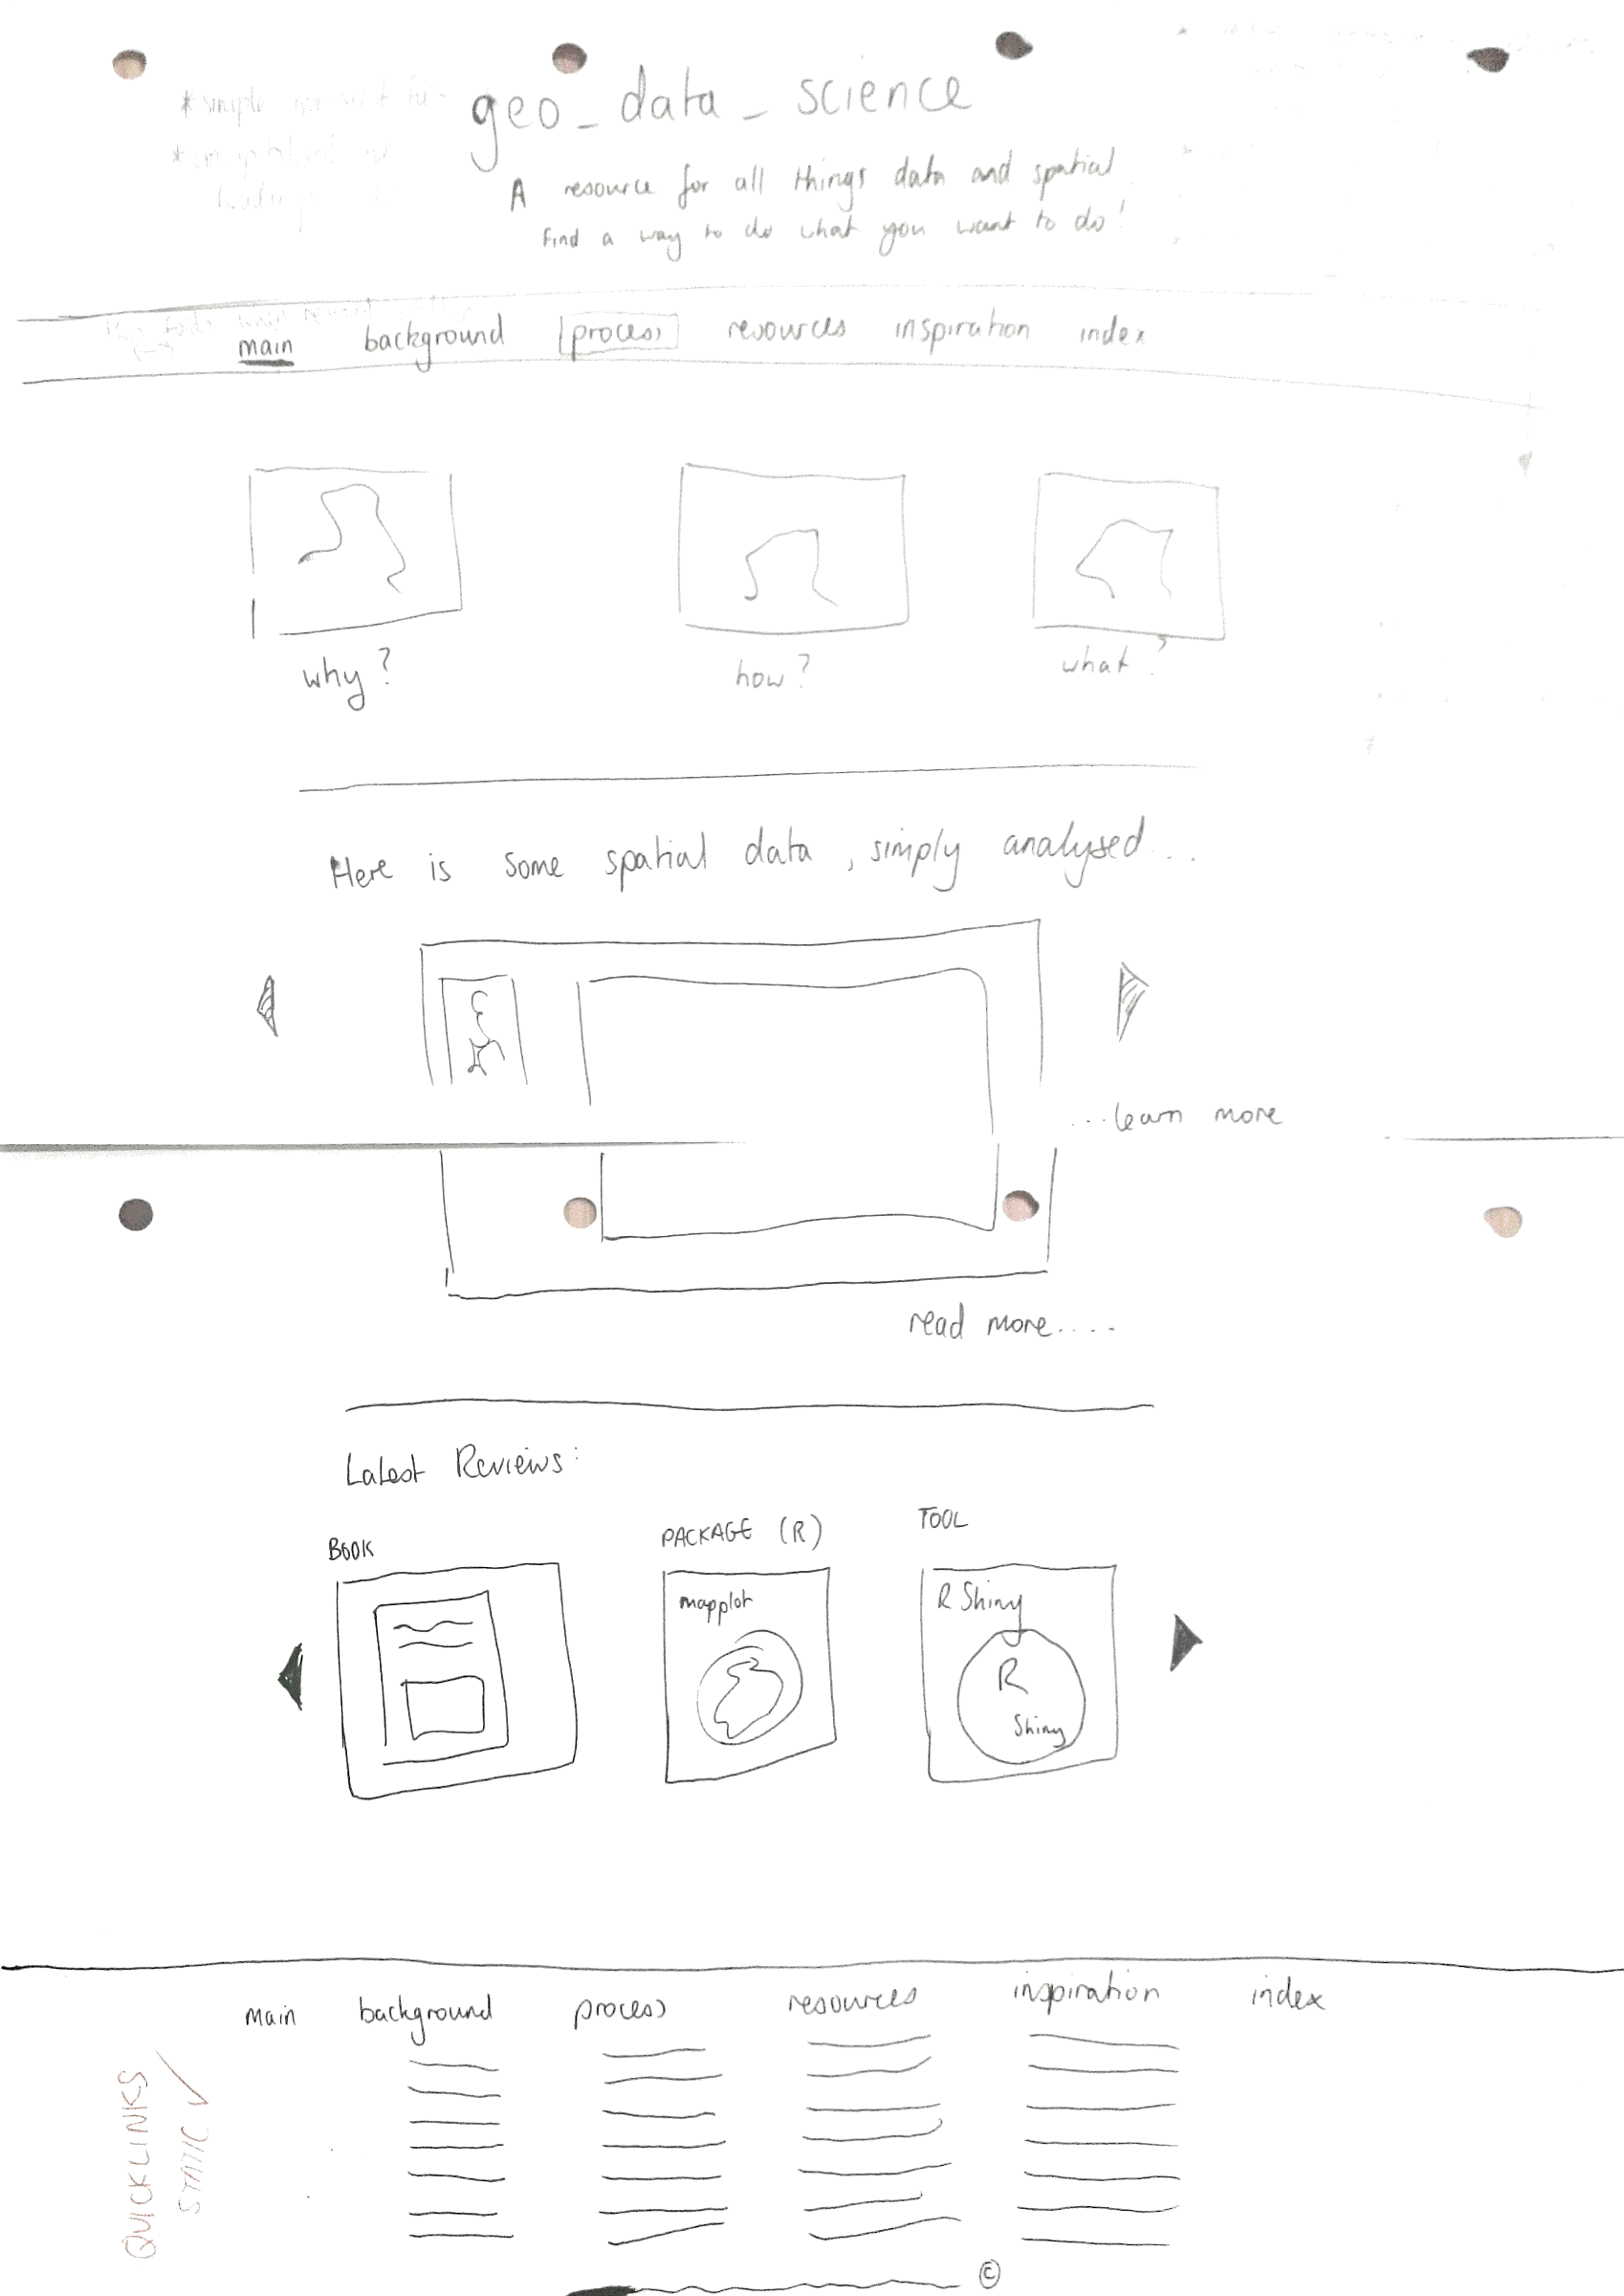 *simple
geo_data_science
A resource for all things data and spatial
Find a way to do what you want to do!
main background process resources inspiration index
why? how? what?
Here is some spatial data, simply analysed...
...learn more
read more.....
Latest Reviews:
BOOK PACKAGE (R) TOOL
mapplot R Shiny
R
Shiny
main background process resources inspiration index
QUICKLINKS
STATIC ✓
©